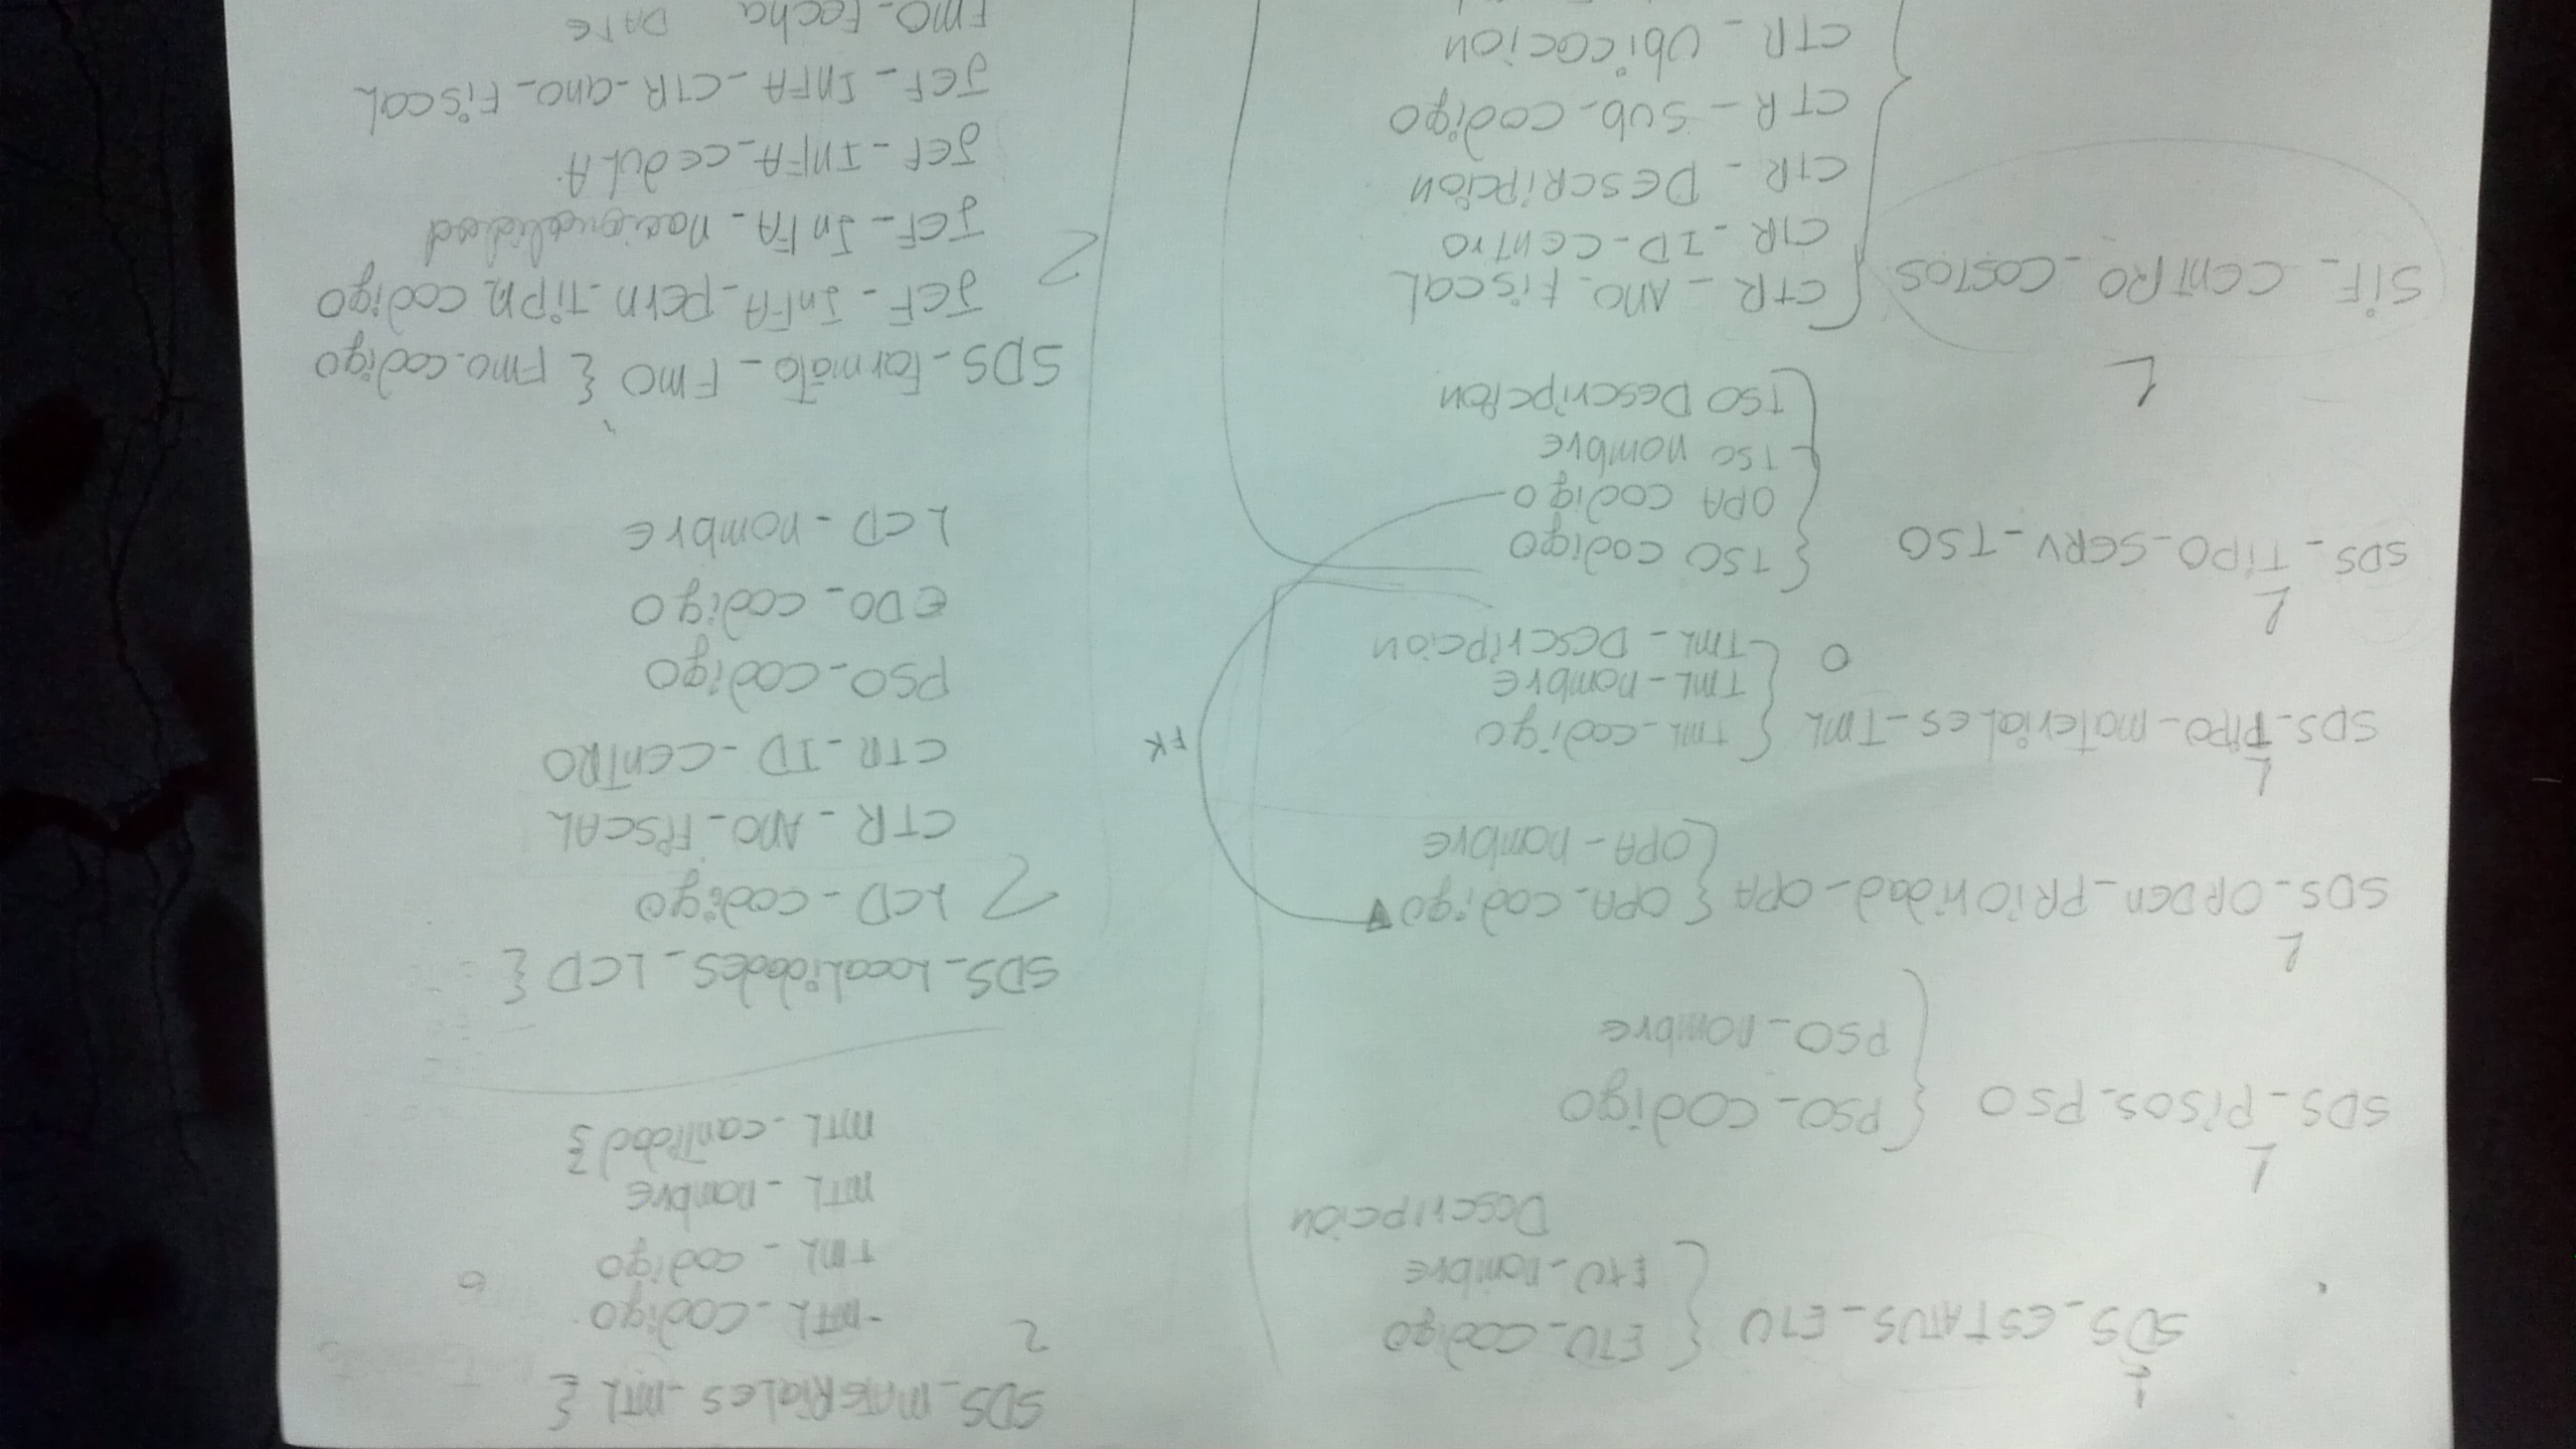 1
SDS_ESTATUS_ETU { ETU_codigo
ETU_nombre
Descripcion
L
SDS_Pisos_PSO { PSO_codigo
PSO_nombre
L
SDS_ORDEN_PRioridad_OPA { OPA_codigo
OPA_nombre
L
SDS_Tipo_materiales_TML { TML_codigo
TML_nombre
TML_Descripcion
O
L
SDS_TiPO_SERV_TSO { TSO codigo
OPA codigo
TSO nombre
TSO Descripcion
FK
L
SiF_CENTRO_COSTOS { CTR_ANO_FiscaL
CTR_ID_centro
CTR_DEscripcion
CTR_Sub_codigo
CTR_Ubicacion
SDS_MATERiales_MTL {
2
-MTL_codigo
TML_codigo
o
MTL_nombre
MTL_cantidad }
SDS_Localidades_LCD {
2 LCD_codigo
CTR_ANO_FiSCAL
CTR_ID_CENTRO
PSO_codigo
EDO_codigo
LCD_nombre
SDS_Formato_FMO { FMO_codigo
JEF_INFA_PErN_TiPN codigo
2
JEF_INFA_nacionalidad
JEF_INFA_CEDULA.
JEF_INFA_CTR_ano_FiscaL
FMO_Fecha DATE